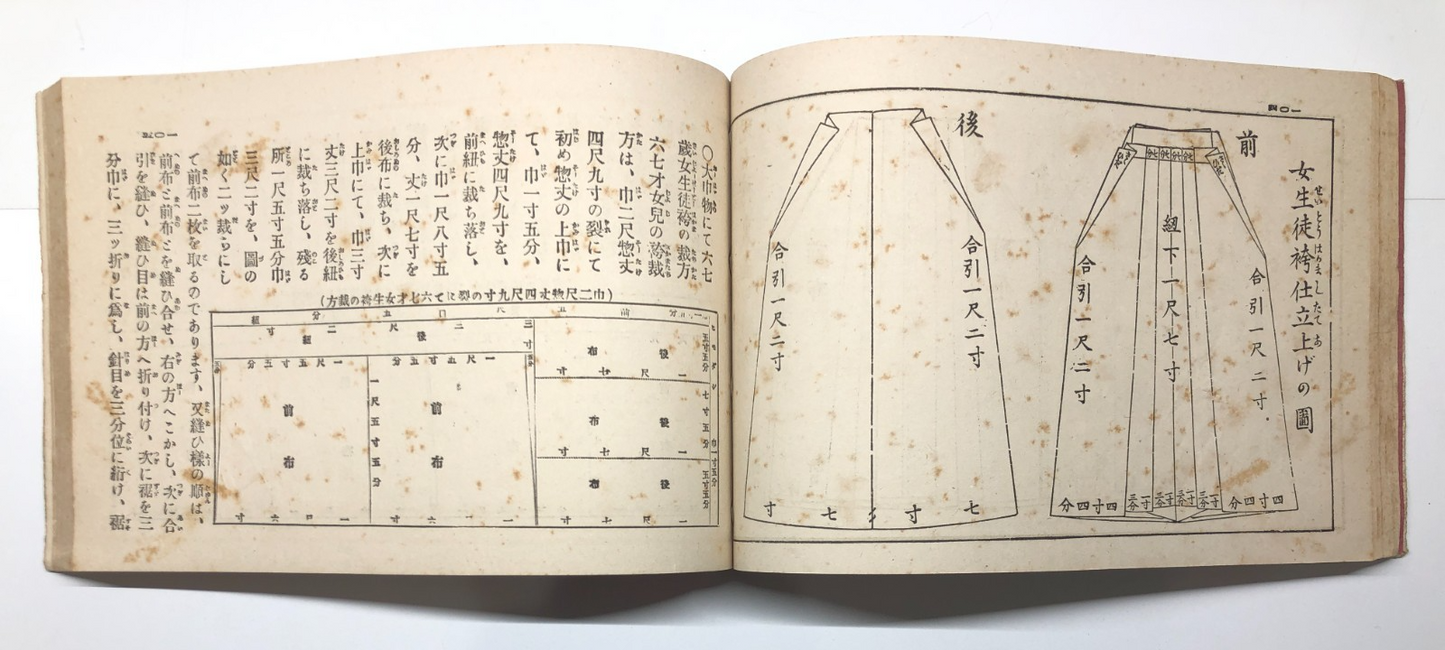 女生徒袴仕立上げの圖
前
紐下一尺七寸
合引一尺二寸
合引一尺二寸
四寸四分
四寸四分
後
合引一尺二寸
合引一尺二寸
七寸
七寸
〇大巾物にて六七
歳女生徒袴の裁方
六七才女兒の袴裁
方は、巾二尺惣丈
四尺九寸の裂にて
初め惣丈の上巾に
て、巾一寸五分、
惣丈四尺九寸を、
前紐に裁ち落し、
次に巾一尺八寸五
分、丈一尺七寸を
後布に裁ち、次に
上巾にて、巾三寸
丈三尺二寸を後紐
に裁ち落し、殘る
所一尺五寸五分巾
三尺二寸を、圖の
如く二ッ裁ちにし
て前布二枚を取るのであります、又縫ひ樣の順は、
前布と前布とを縫ひ合せ、右の方へこかし、次に合
引を縫ひ、縫ひ目は前の方へ折り付け、次に裾を三
分巾に、三ッ折りに爲し、針目を三分位に絎け、裾
(巾二尺惣丈四尺九寸の裂にて六七才女生袴の裁方)
後布
一尺七寸
後布
一尺七寸
後布
一尺七寸
後紐
三寸
二尺二寸
一尺五寸五分
前布
一尺六寸
一尺五寸五分
一尺五寸五分
前布
一尺六寸
七寸五分